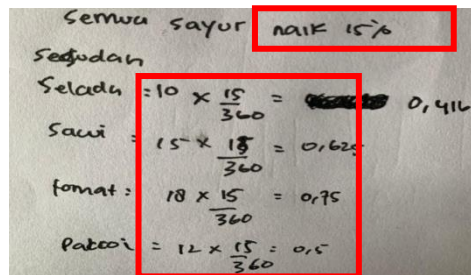 Semua sayur naik 15%
Sesudah
Selada = 10 × 15/360 = 0,416
Sawi = 15 × 15/360 = 0,625
Tomat : 18 × 15/360 = 0,75
Pakcoi = 12 × 15/360 = 0,5